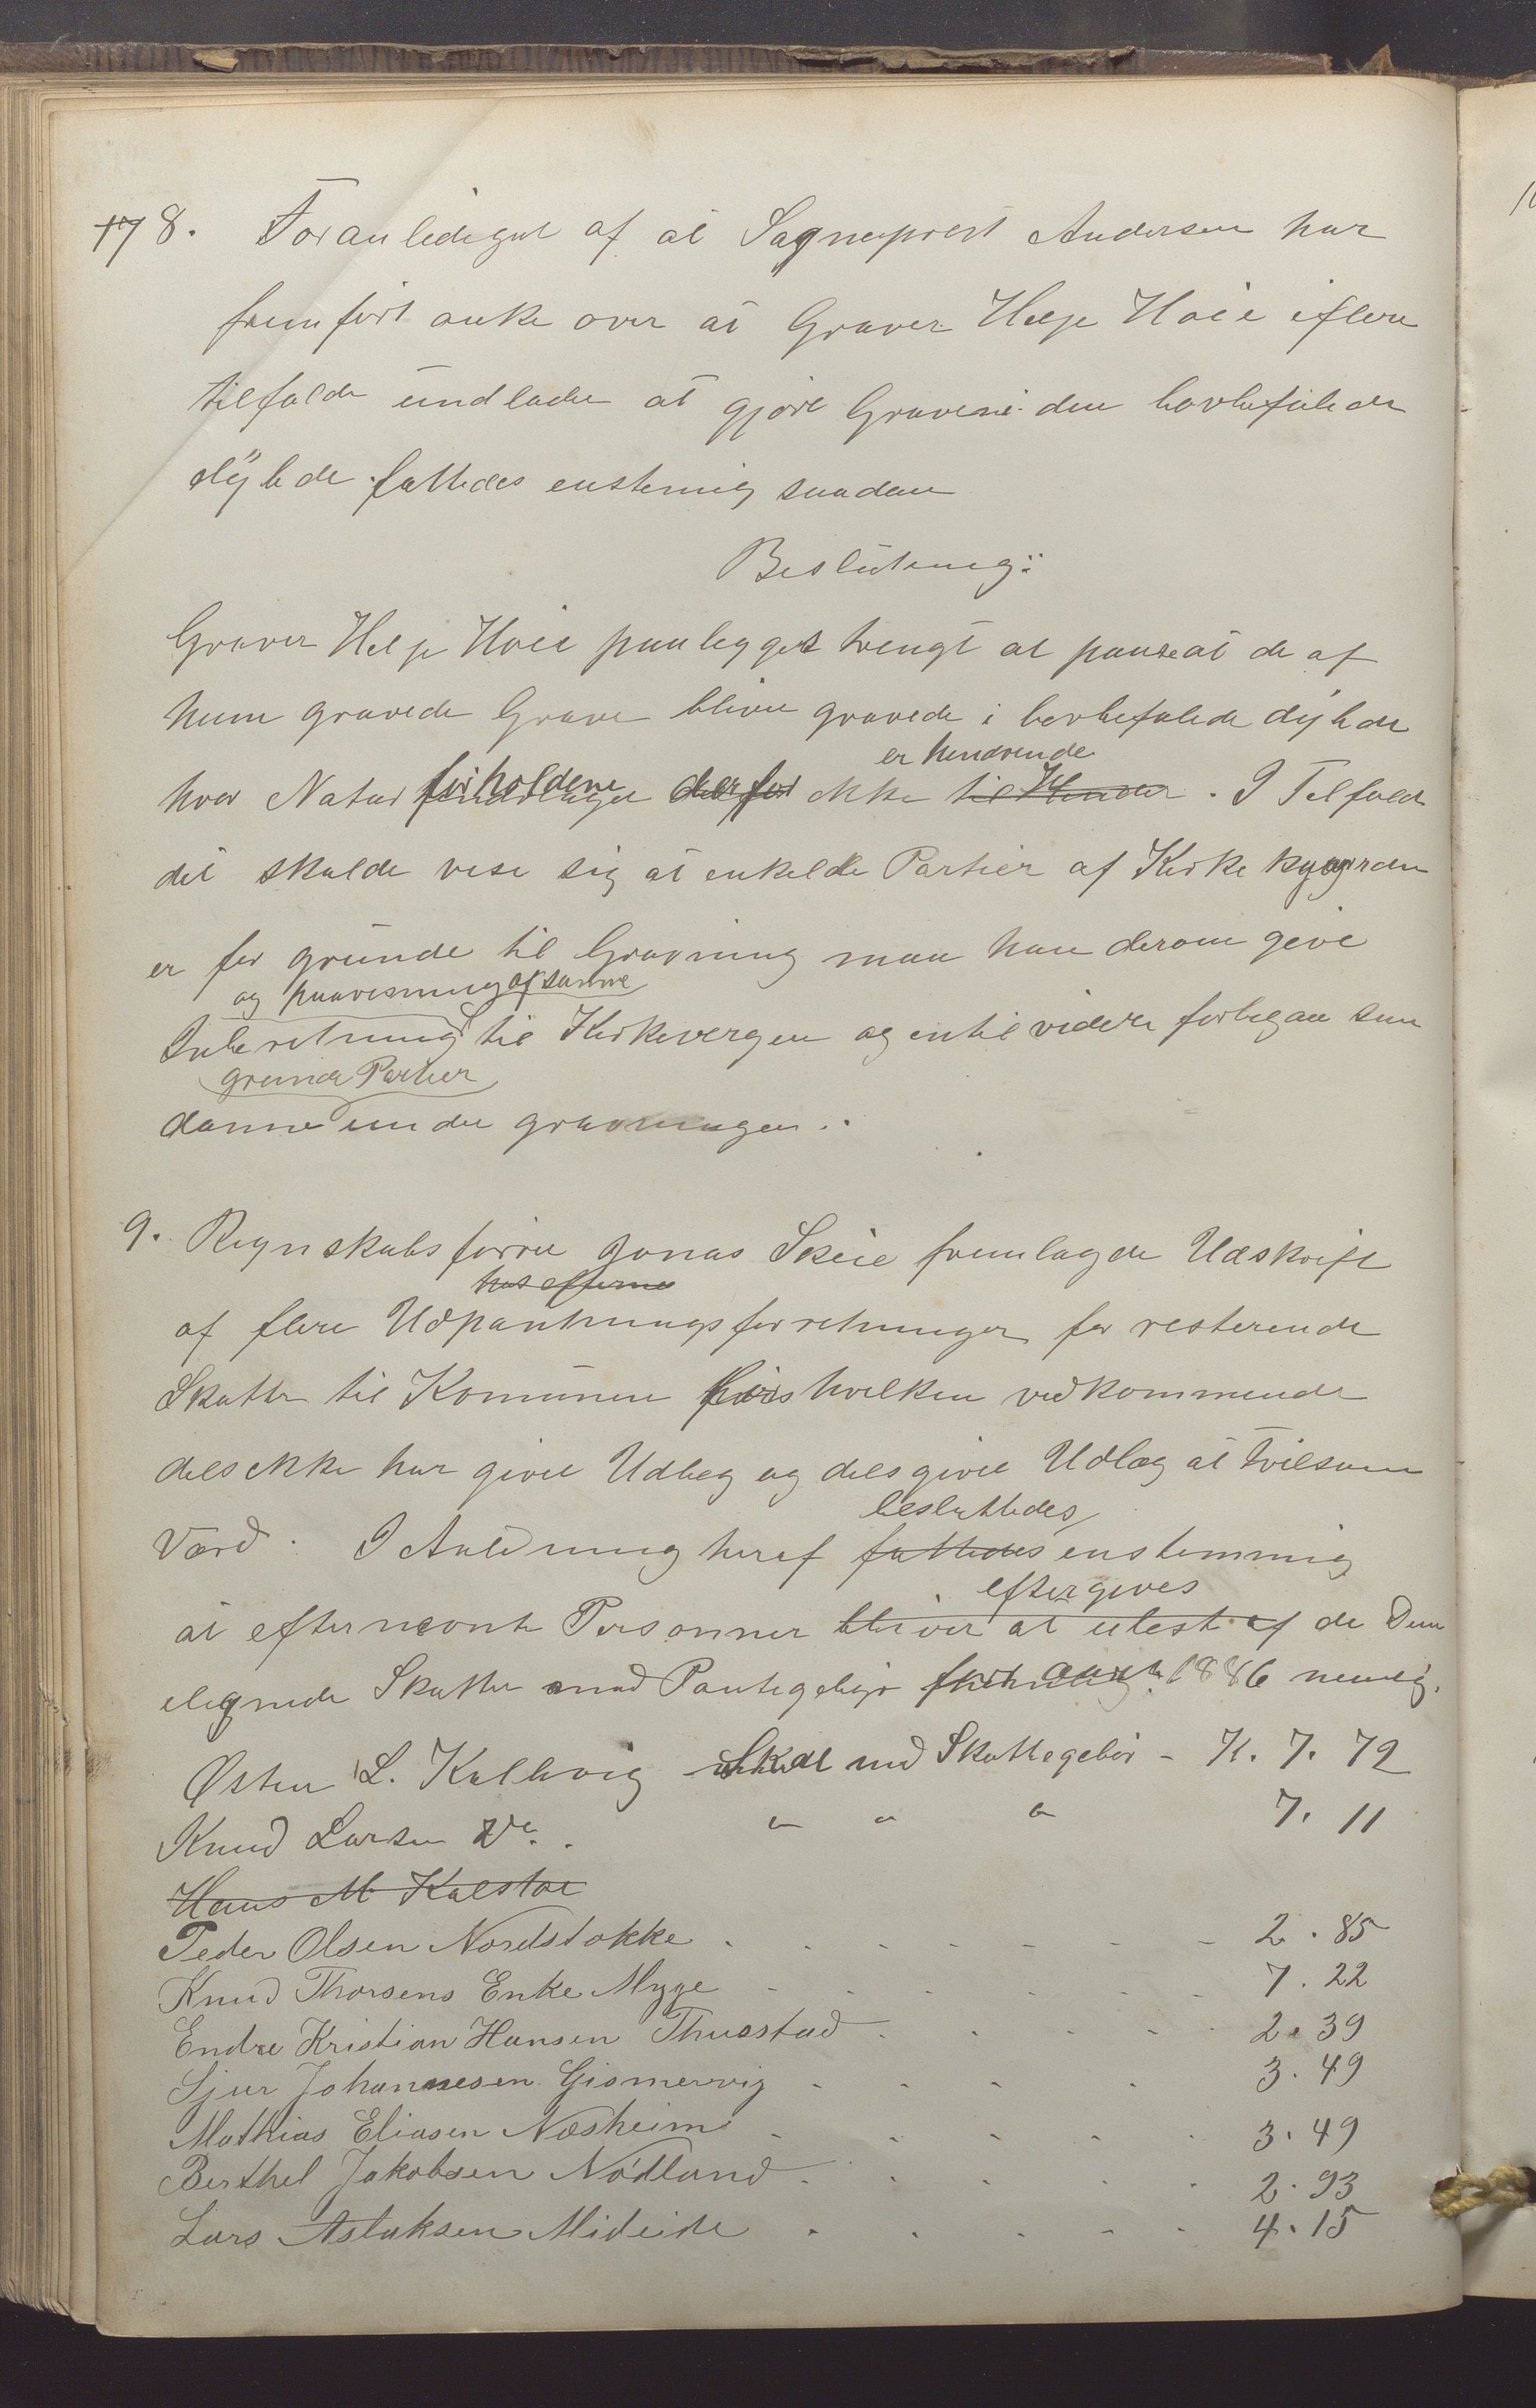 8. Foranlediget af at Sogneprest Andersen har
fremført anke over at Graver Helje Høie i flere
tilfælde undlader at gjøre Gravene i den lovbefalede
dÿbde fattedes enstemig saadan
Beslutning:
Graver Helje Høie paalegges strengt at paase at de af
ham gravede Grave bliver gravede i lovbefalede dÿbde
er hindrende
hvor Naturforholdene ikke til Hinder. I Tilfælde
det skulde vise sig at enkelte Partier af Kirkegaarden
er for grunde til Gravning maa han derom give
og paavisning af samme
Inberetning til Kirkevergen og intil videre forbigaa saa
grunde Partier
danne under gravningen.
9. Regnskabsfører Jonas Skeie fremlagde Udskrift
hos efterne
af flere Udpantningsforretninger for resterende
Skatter til Komunen hos hvilken vedkommende
dels ikke har givet Udleg og dels givet Udlæg at tvilsom
besluttedes
Værd. I Anledning heraf fattedes enstemmig
eftergives
at efternevnte Personner bliver at utest af de Dem
ilignede Skatter med Pantegebyr 1886 nemlig.
Østen L. Kallevig Skat med Skattegebür - K. 7. 72
Knud Larsen Do. " " " 7. 11
Hans M Kalstø
Peder Olsen Nordstokke . . . . . . . 2. 85
Knud Thorsens Enke Myge - . . . . . 7. 22
Endre Kristian Hansen Thuestad . . . . . 2. 39
Sjur Johannesen Gismervig . . . . 3. 49
Mathias Eliasen Næsheim . . . . . 3. 49
Berthel Jakobsen Nødland . . . . . 2. 93
Lars Aslaksen Mideide . . . . . 4. 15